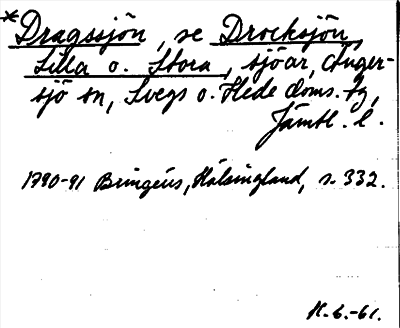 *Dragssjön, se Drocksjön,
Lilla o. Stora, sjöar, Ånger-
sjö sn, Svegs o. Hede doms. tg,
Jämtl. l.
1790-91 Bringéus, Hälsingland, s. 332.
H. 6.-61.